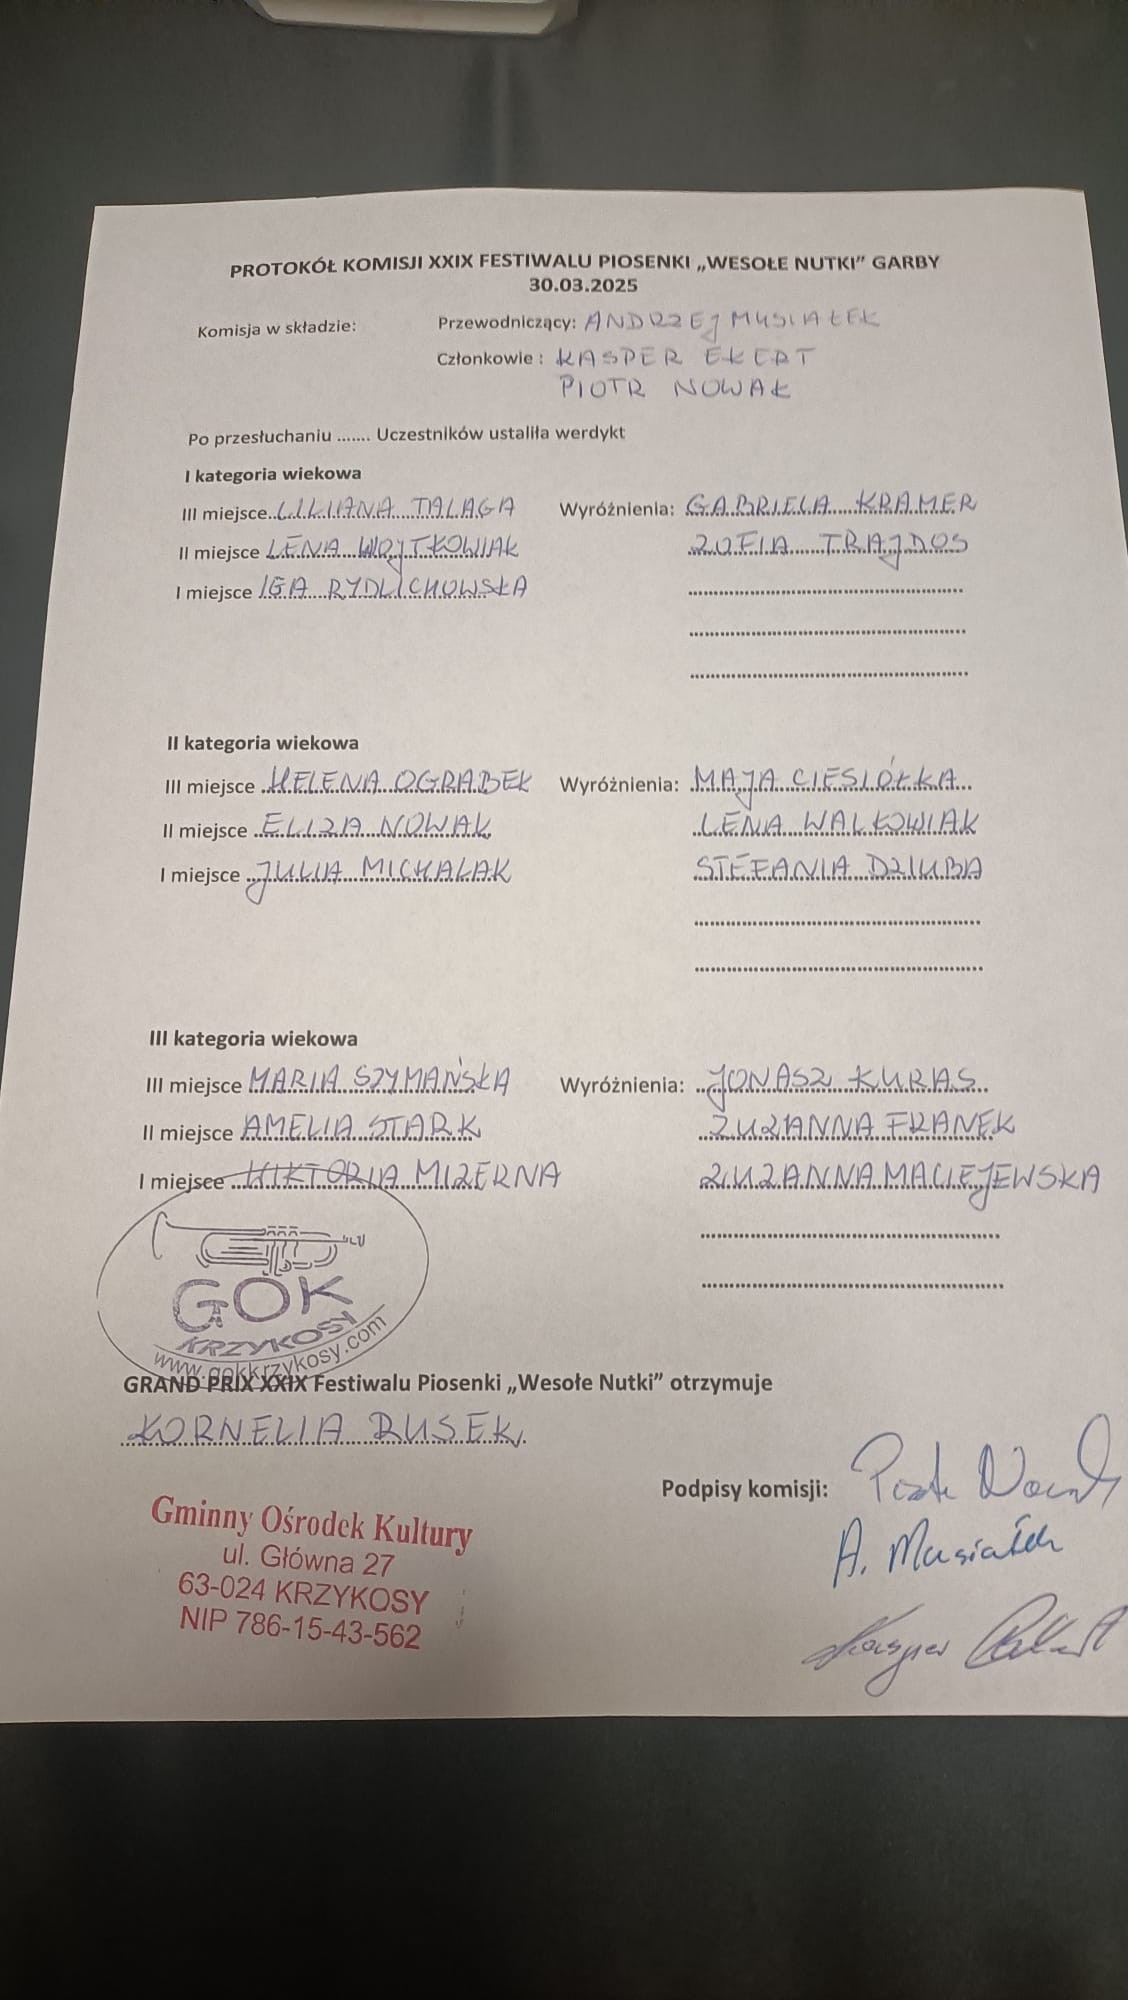 PROTOKÓŁ KOMISJI XXIX FESTIWALU PIOSENKI „WESOŁE NUTKI” GARBY
30.03.2025
Komisja w składzie: Przewodniczący: ANDRZEJ MUSIAŁEK
Członkowie : KASPER EKERT
PIOTR NOWAK
Po przesłuchaniu ....... Uczestników ustaliła werdykt
I kategoria wiekowa
III miejsce LILIANA TALAGA Wyróżnienia: GABRIELA KRAMER
II miejsce LENA WOJTKOWIAK ZOFIA TRAJDOS
I miejsce IGA RYDLICHOWSKA
II kategoria wiekowa
III miejsce HELENA OGRABEK Wyróżnienia: MAJA CIESIÓŁKA
II miejsce ELIZA NOWAK LENA WALKOWIAK
I miejsce JULIA MICHALAK STEFANIA DZIUBA
III kategoria wiekowa
III miejsce MARIA SZYMAŃSKA Wyróżnienia: JONASZ KURAS
II miejsce AMELIA STARK ZUZANNA FRANEK
I miejsce WIKTORIA MIZERNA ZUZANNA MACIEJEWSKA
GOK
KRZYKOSY
www.gokkrzykosy.com
GRAND PRIX XXIX Festiwalu Piosenki „Wesołe Nutki” otrzymuje
KORNELIA RUSEK
Podpisy komisji: Piotr Nowak
A. Musiałek
Kasper Ekert
Gminny Ośrodek Kultury
ul. Główna 27
63-024 KRZYKOSY
NIP 786-15-43-562